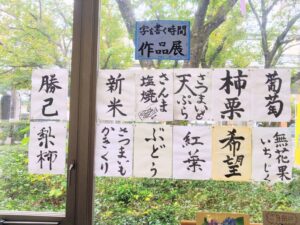 字を書く時間
作品展
葡萄
柿栗
さつまいも
天ぷら
さんま
塩焼
新米
勝己
無花果
いちじく
希望
紅葉
ぶどう
さつまいも
かきくり
梨柿